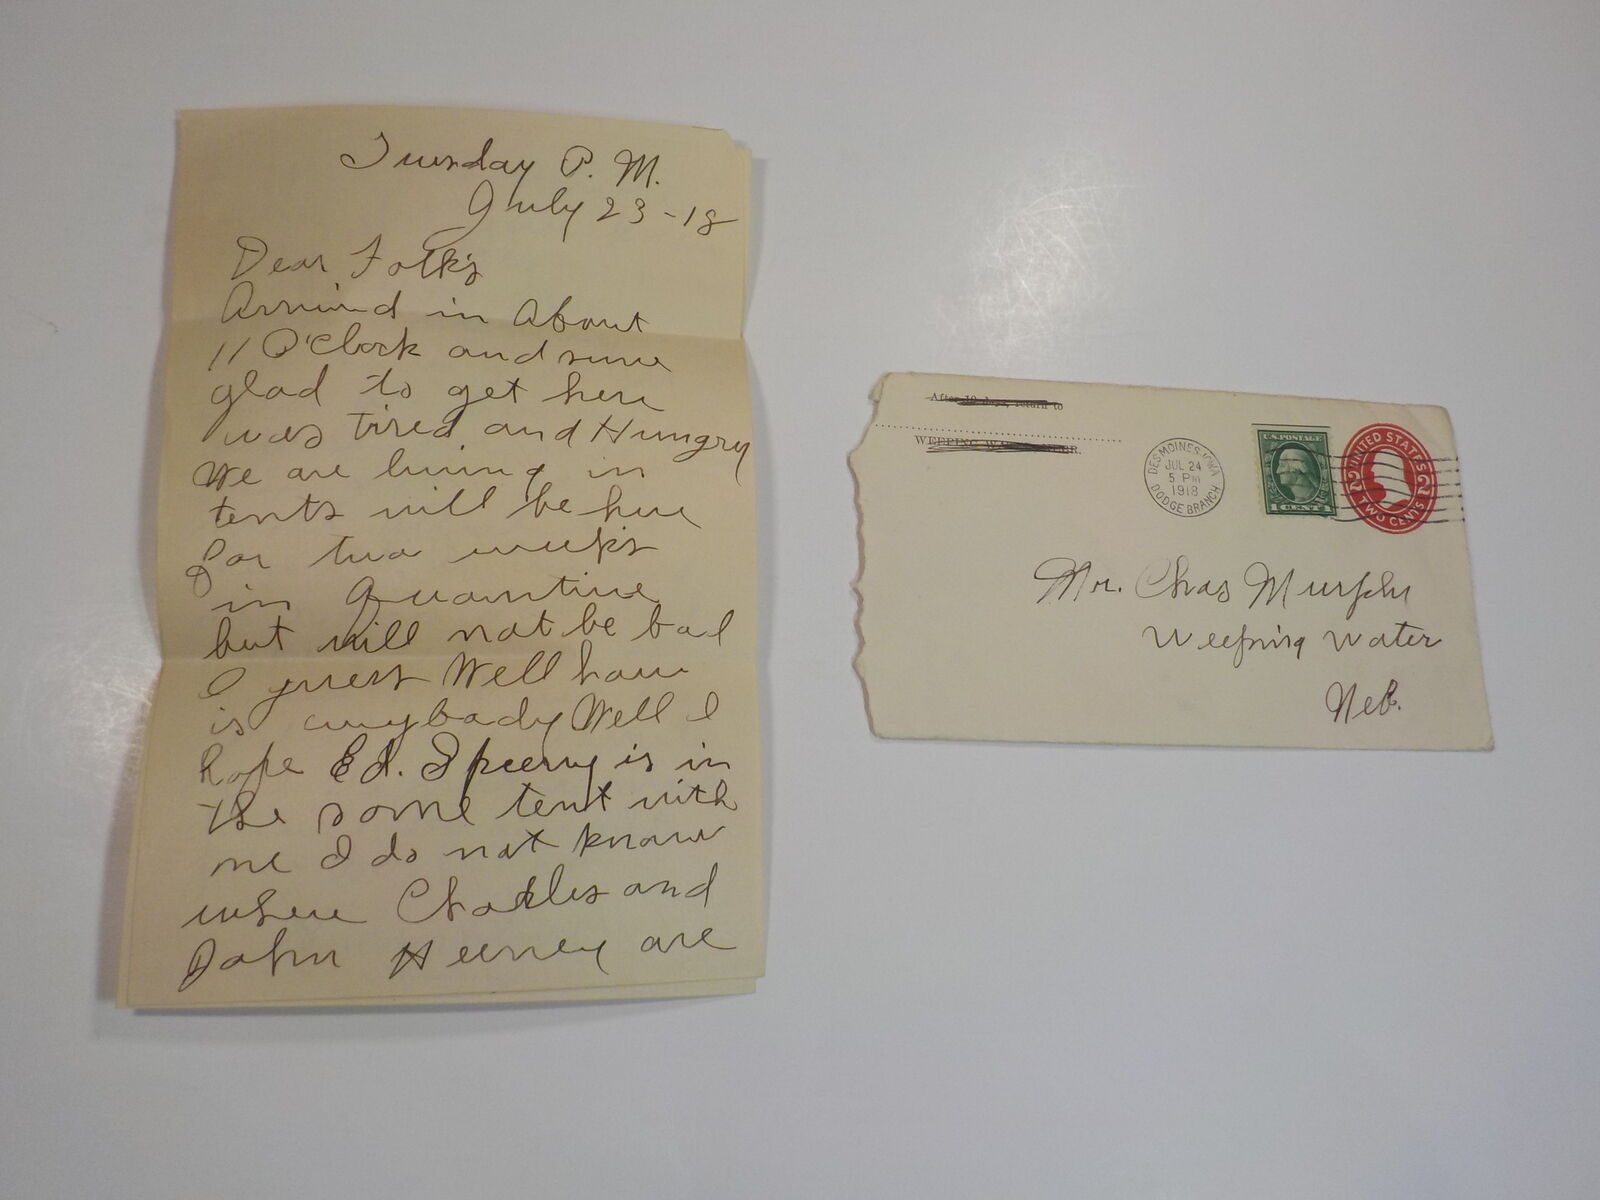 Tuesday P. M.
July 23-18
Dear Folk's
Arrived in About
11 O'Clock and sure
glad to get here
was tired and Hungry
We are living in
tents will be here
for two week's
in Quarntine
but will not be bad
I guess Well how
is anybody Well I
hope Ed. Speery is in
the same tent with
me I do not know
where Charles and
John Heeney are
After 10 days, return to
WEEPING WATER, NEBR.
DES MOINES, IOWA
JUL 24
5 PM
1918
DODGE BRANCH
U.S. POSTAGE
1 CENT
UNITED STATES
2 2
TWO CENTS
Mr. Chas Murphy
Weeping Water
Neb.